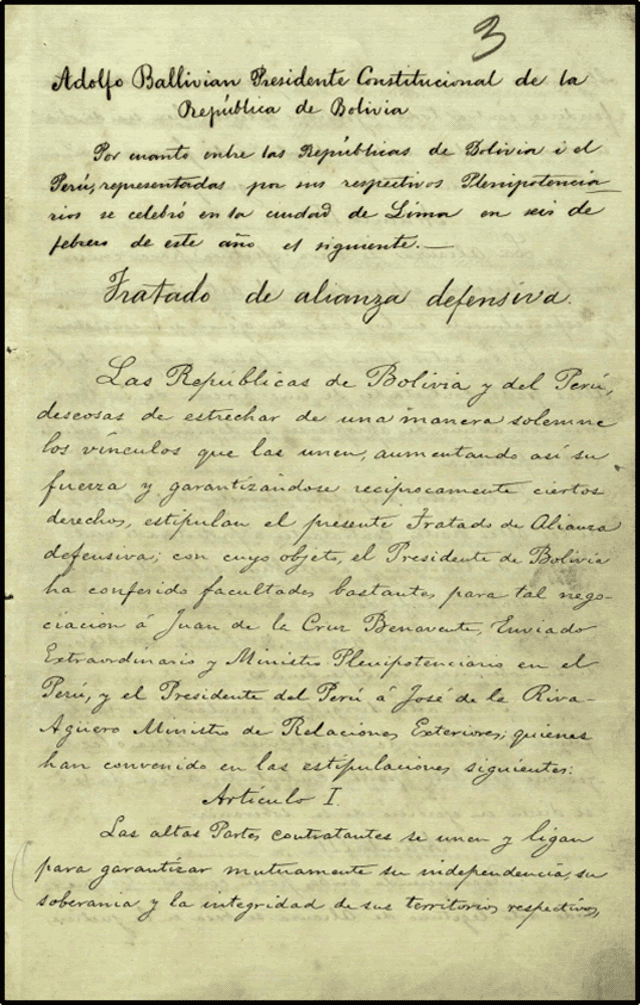 3
Adolfo Ballivian Presidente Constitucional de la
República de Bolivia
Por cuanto entre las Repúblicas de Bolivia i el
Perú, representadas por sus respectivos Plenipotencia
rios se celebró en la ciudad de Lima en seis de
febrero de este año el siguiente.—
Tratado de alianza defensiva.
Las Repúblicas de Bolivia y del Perú,
deseosas de estrechar de una manera solemne
los vínculos que las unen, aumentando así su
fuerza y garantizándose recíprocamente ciertos
derechos, estipulan el presente Tratado de Alianza
defensiva; con cuyo objeto, el Presidente de Bolivia
ha conferido facultades bastantes para tal nego-
ciacion á Juan de la Cruz Benavente, Enviado
Extraordinario y Ministro Plenipotenciario en el
Perú, y el Presidente del Perú á José de la Riva-
Agüero Ministro de Relaciones Exteriores; quienes
han convenido en las estipulaciones siguientes:
Artículo I.
Las altas Partes contratantes se unen y ligan
para garantizar mutuamente su independencia, su
soberania y la integridad de sus territorios respectivos,